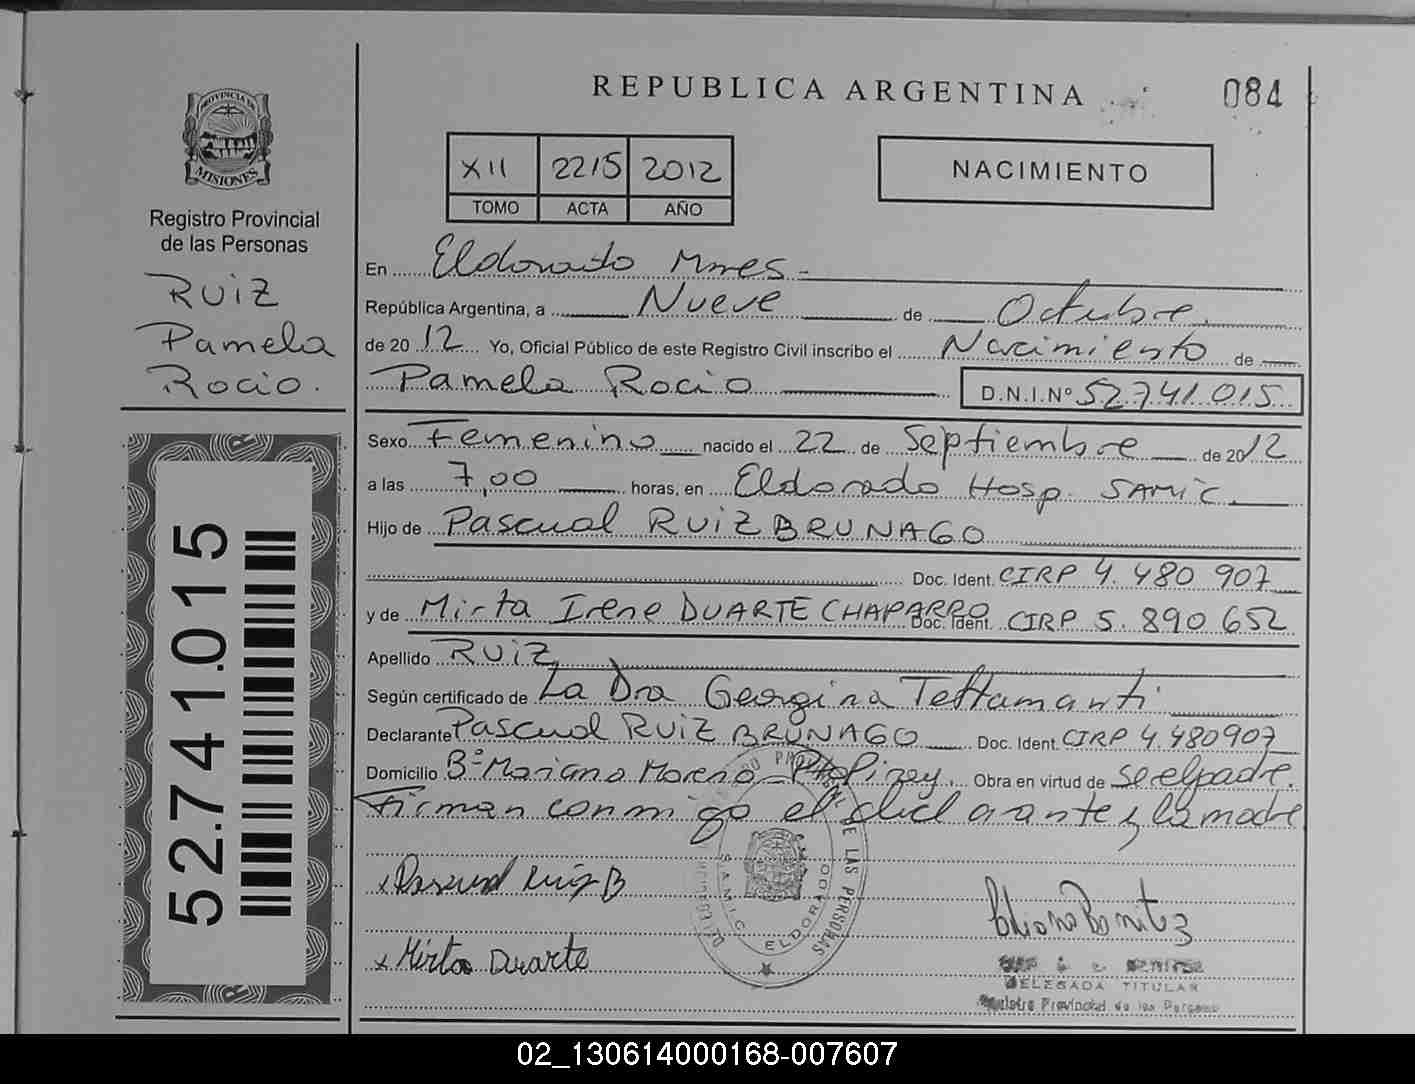 REPUBLICA ARGENTINA
084
PROVINCIA DE
MISIONES
Registro Provincial
de las Personas
RUIZ
Pamela
Rocio.
52.741.015
XII 2215 2012
TOMO ACTA AÑO
NACIMIENTO
En Eldorado Mnes.-
República Argentina, a Nueve de Octubre.
de 2012 Yo, Oficial Público de este Registro Civil inscribo el Nacimiento de
Pamela Rocio D.N.I.Nº 52.741.015
Sexo Femenino nacido el 22 de Septiembre de 2012
a las 7,00 horas, en Eldorado Hosp. SAMIC.
Hijo de Pascual RUIZ BRUNAGO
Doc. Ident. CIRP 4.480 907
y de Mirta Irene DUARTE CHAPARRO Doc. Ident. CIRP 5.890 652
Apellido RUIZ
Según certificado de La Dra Georgina Tettamanti
Declarante Pascual RUIZ BRUNAGO Doc. Ident. CIRP 4.480907
Domicilio Bº Mariano Moreno - Pto Piray. Obra en virtud de ser el padre.
Firman conmigo el declarante y la madre
x Pascual Ruiz B
x Mirta Duarte
DE LAS PERSONAS
SAMIC ELDORADO
Benitez
DELEGADA TITULAR
Registro Provincial de las Personas
02_130614000168-007607